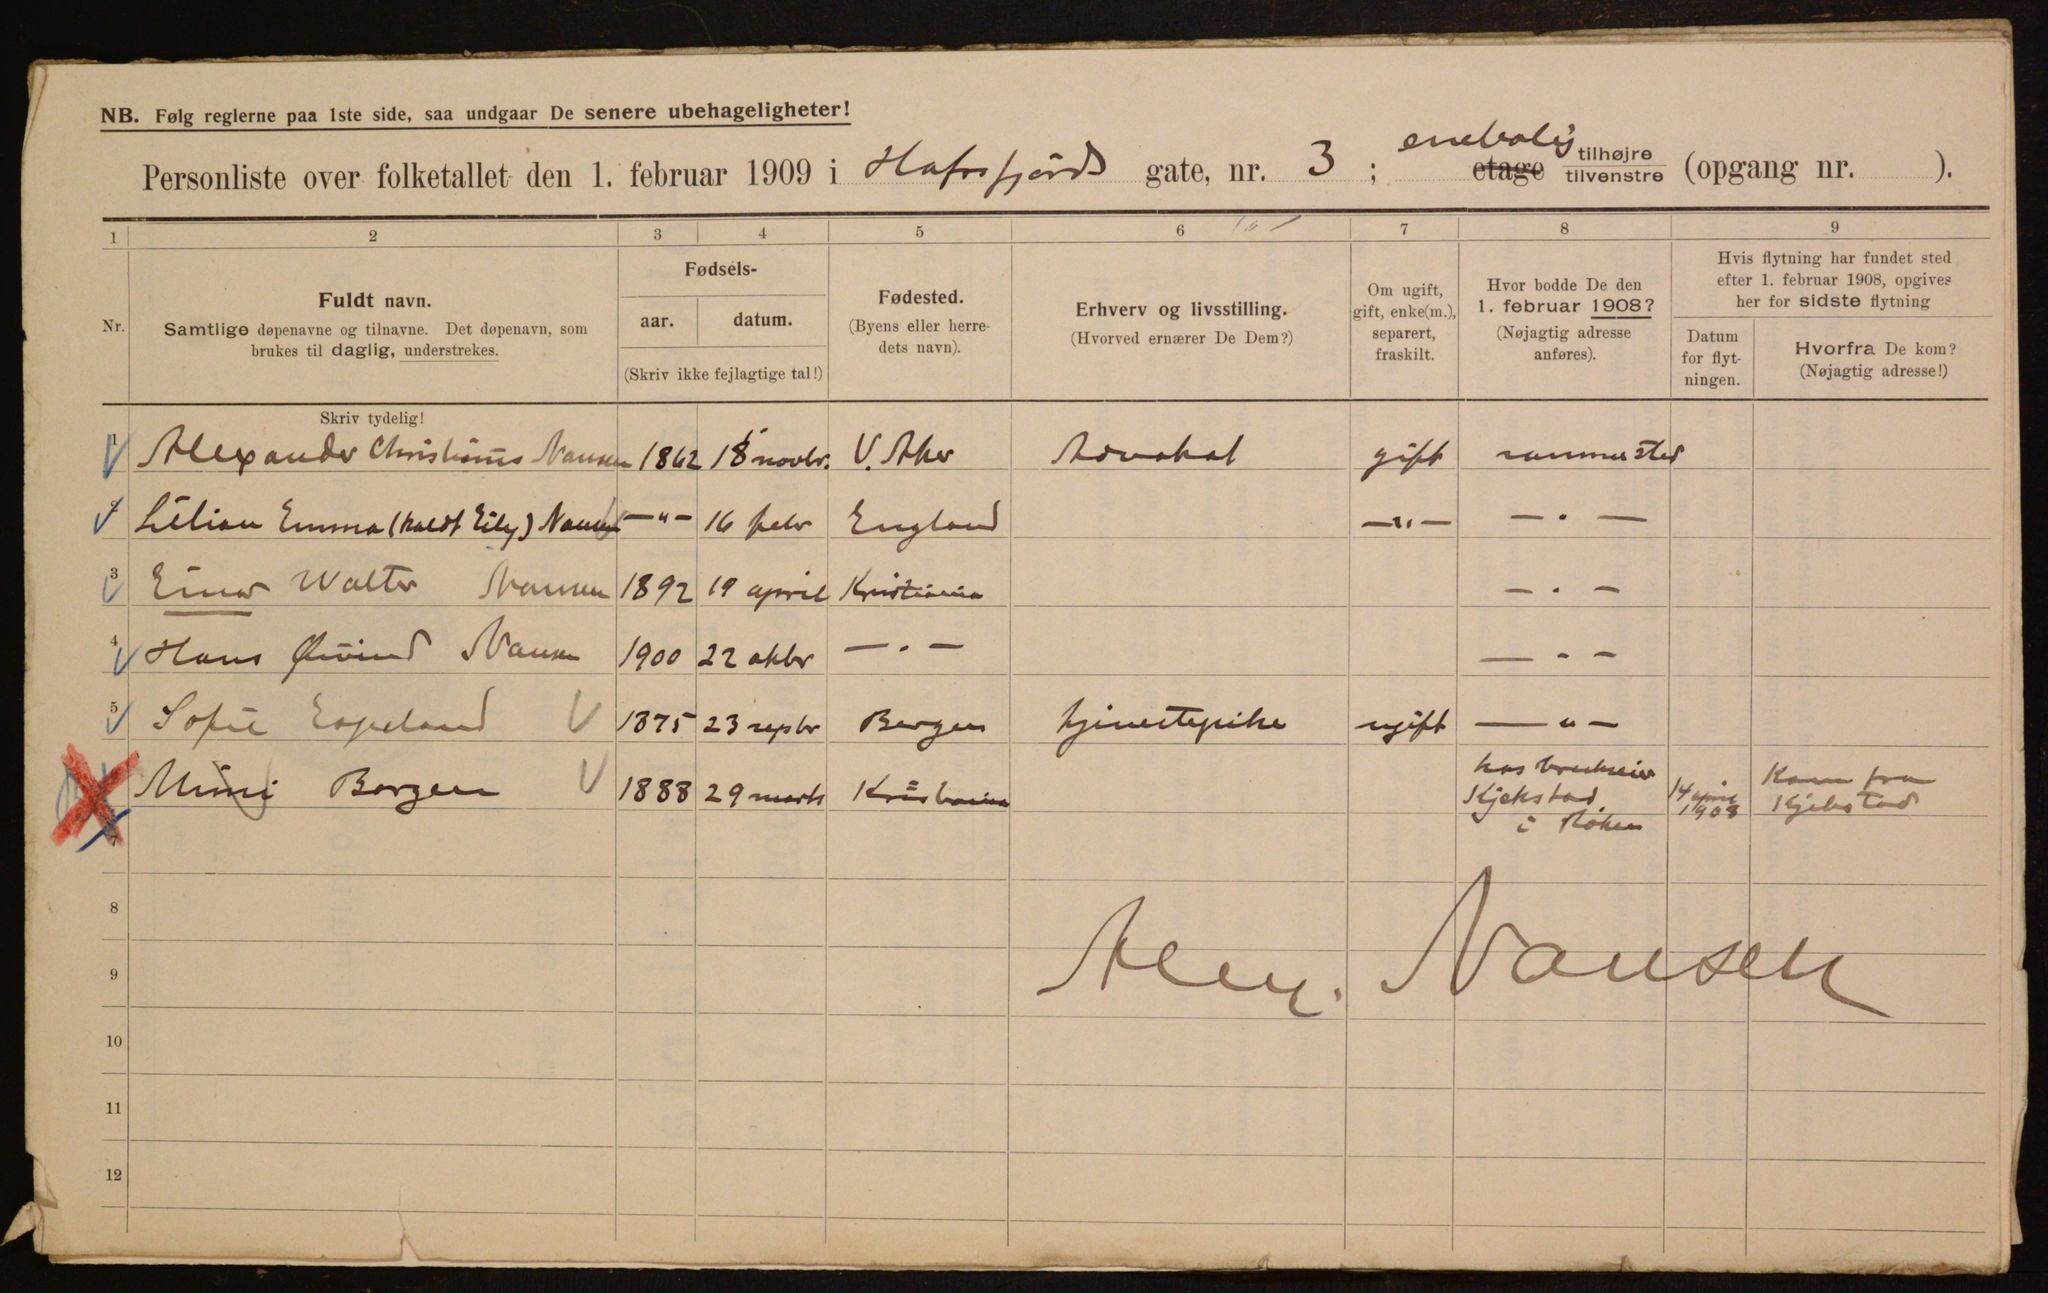 NB. Følg reglerne paa 1ste side, saa undgaar De senere ubehageligheter!
Personliste over folketallet den 1. februar 1909 i Hafrsfjords gate, nr. 3 ; enebolig etage tilhøjre tilvenstre (opgang nr. ).
1 2 3 4 5 6 7 8 9
Nr.
Fuldt navn.
Samtlige døpenavne og tilnavne. Det døpenavn, som
brukes til daglig, understrekes.
Fødsels-
aar. datum.
(Skriv ikke fejlagtige tal!)
Fødested.
(Byens eller herre-
dets navn).
Erhverv og livsstilling.
(Hvorved ernærer De Dem?)
Om ugift,
gift, enke(m.),
separert,
fraskilt.
Hvor bodde De den
1. februar 1908?
(Nøjagtig adresse
anføres).
Hvis flytning har fundet sted
efter 1. februar 1908, opgives
her for sidste flytning
Datum
for flyt-
ningen.
Hvorfra De kom?
(Nøjagtig adresse!)
Skriv tydelig!
1 Alexander Christinus Nansen 1862 18 novbr. V. Aker Advokat gift sammested
2 Lilian Emma (kaldt Eily) Nansen —"— 16 febr England —"— — . —
3 Einar Walter Nansen 1892 19 april Kristiania — . —
4 Hans Øivind Nansen 1900 22 oktbr — . — — . —
5 Sofie Espeland 1875 23 septbr Bergen tjenestepike ugift — " —
Mimi Borgen 1888 29 marts Kristiania hos brukseier
Kjekstad
i Røken
14 april
1908
Kom fra
Kjekstad
7
8
Alex. Nansen
9
10
11
12